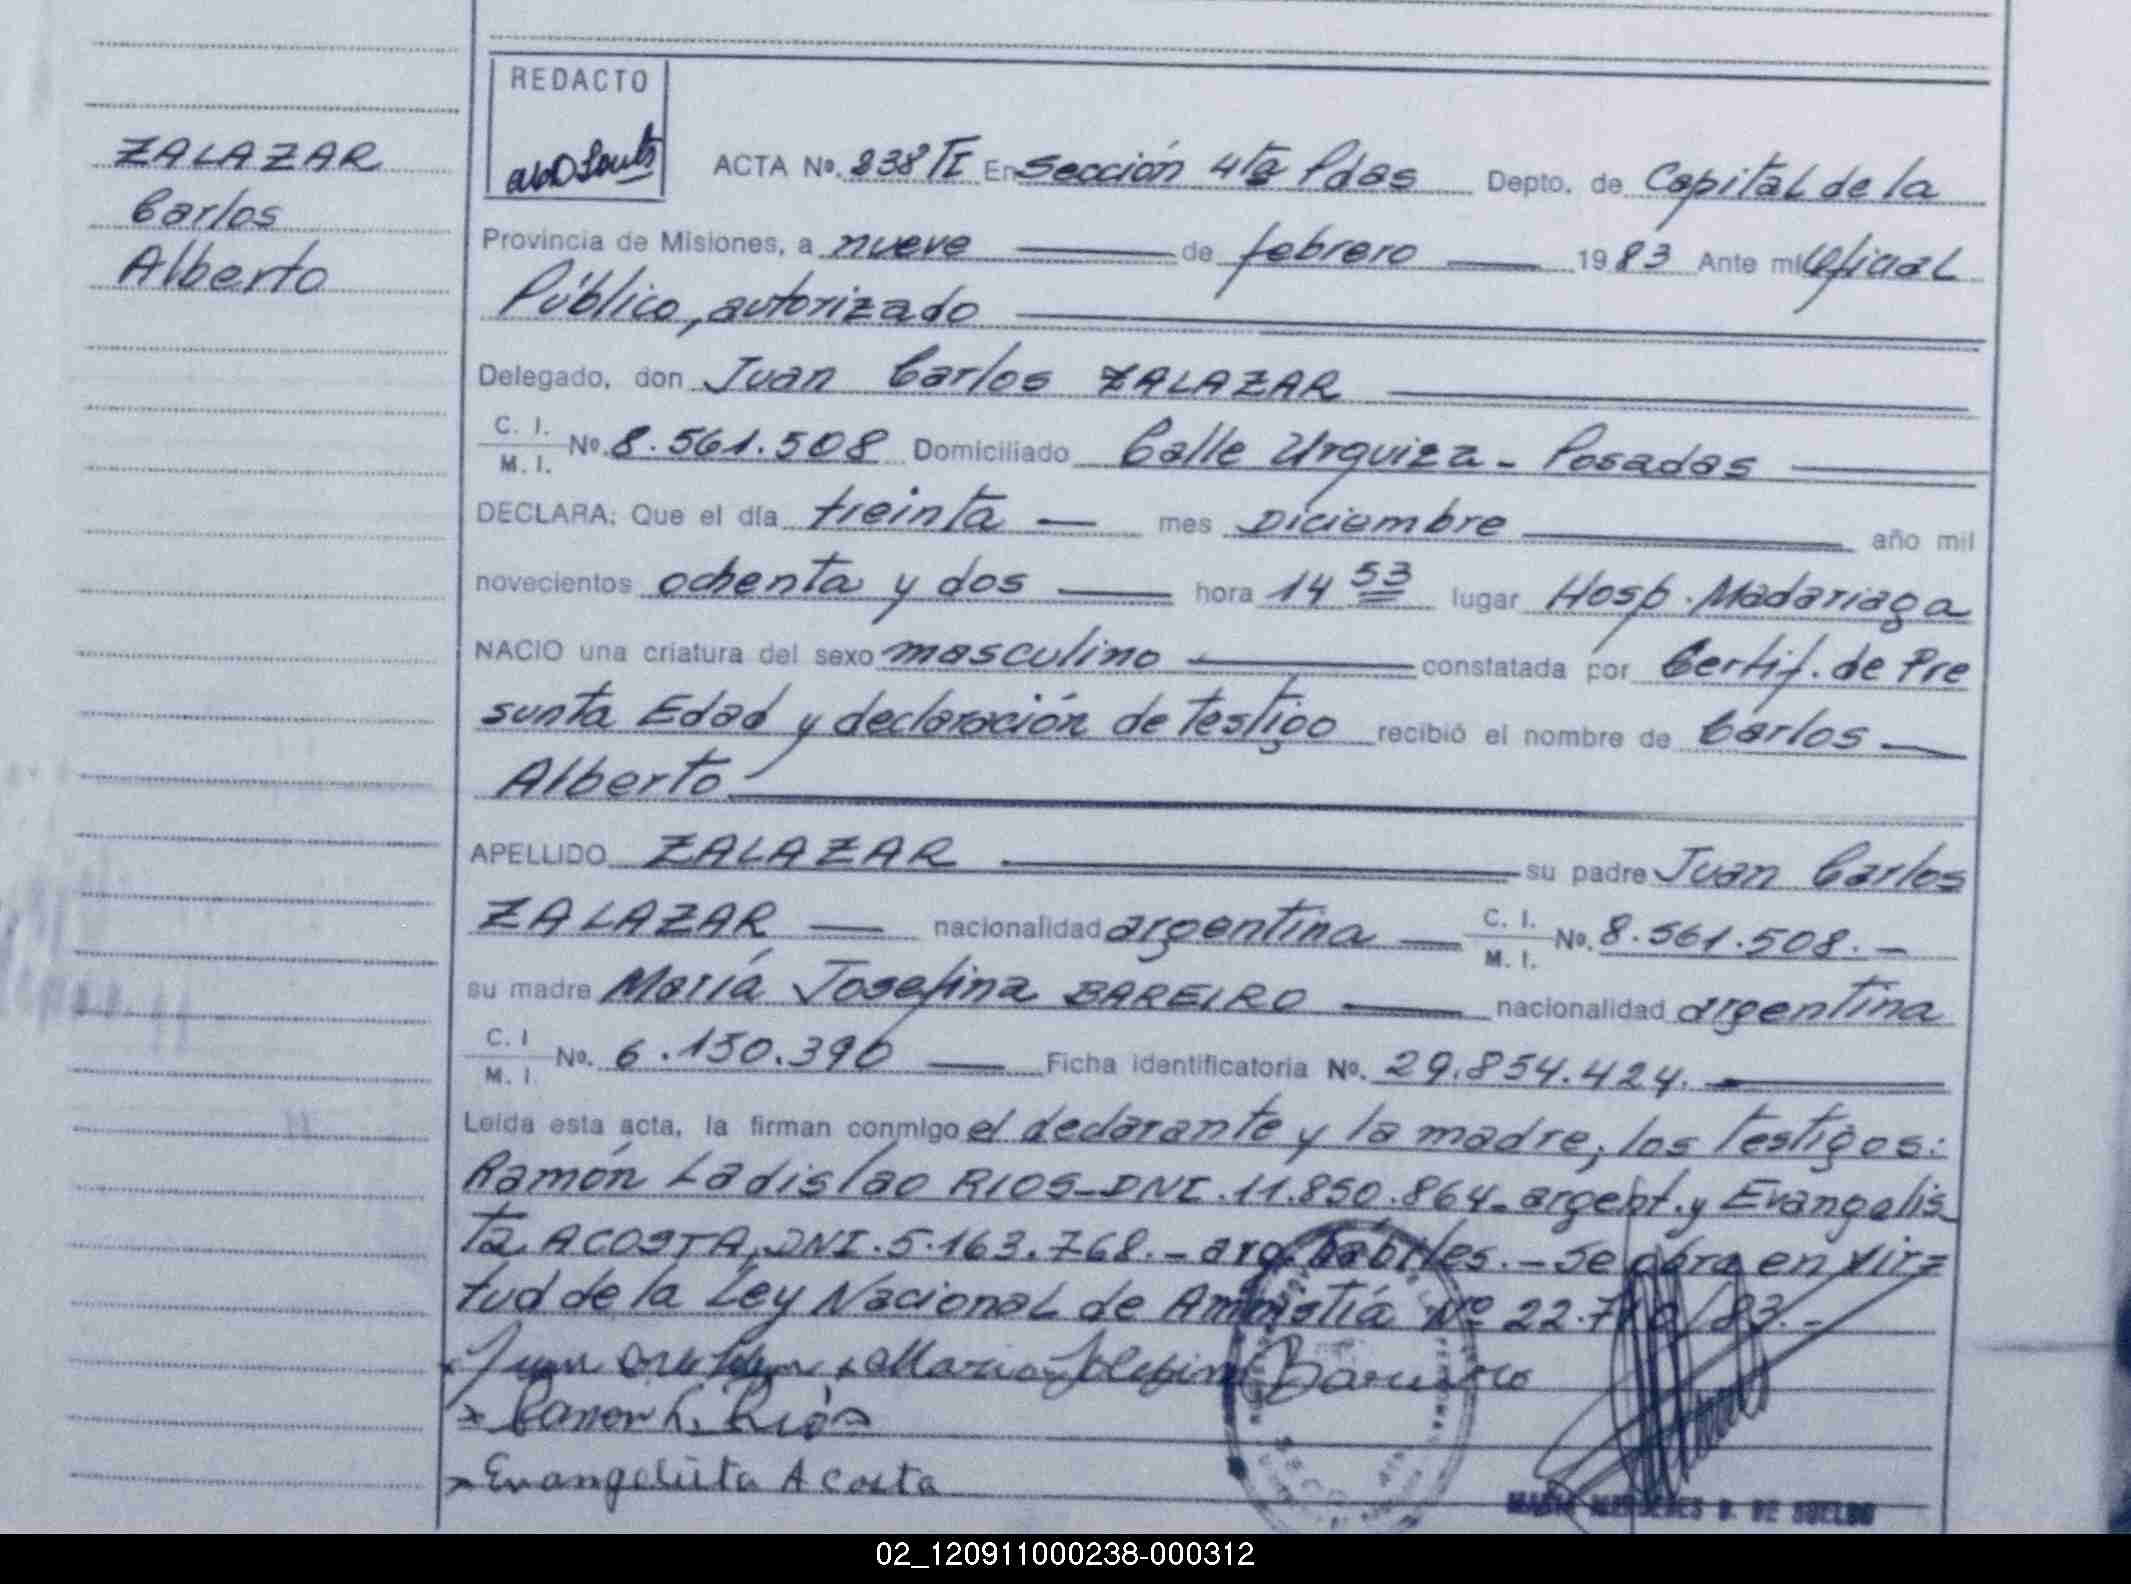 ZALAZAR
Carlos
Alberto
REDACTO
ACTA No. 238 TI En Sección 4ta Pdas Depto. de Capital de la
Provincia de Misiones, a nueve de febrero 1983 Ante mí Oficial
Público, autorizado
Delegado, don Juan Carlos ZALAZAR
C. I.
M. I. No. 8.561.508 Domiciliado Calle Urquiza - Posadas
DECLARA: Que el día treinta mes Diciembre año mil
novecientos ochenta y dos hora 14 53 lugar Hosp. Madariaga
NACIO una criatura del sexo masculino constatada por Certif. de Pre
sunta Edad y declaración de testigo recibió el nombre de Carlos
Alberto
APELLIDO ZALAZAR su padre Juan Carlos
ZALAZAR nacionalidad argentina C. I. M. I. No. 8.561.508.-
su madre María Josefina BAREIRO nacionalidad argentina
C. I M. I. No. 6.150.390 Ficha identificatoria No. 29.854.424.
Leída esta acta, la firman conmigo el declarante y la madre, los testigos:
Ramón Ladislao RIOS-DNI.11.850.864-argent. y Evangelis
ta ACOSTA, DNI.5.163.768.-arg. hábiles.-Se obra en vir=
tud de la Ley Nacional de Amnistía Nº 22.710/83.-
x Maria Josefina Bareiro
x Ramon L. Rios
x Evangelista Acosta
DE SUELDO
02_120911000238-000312